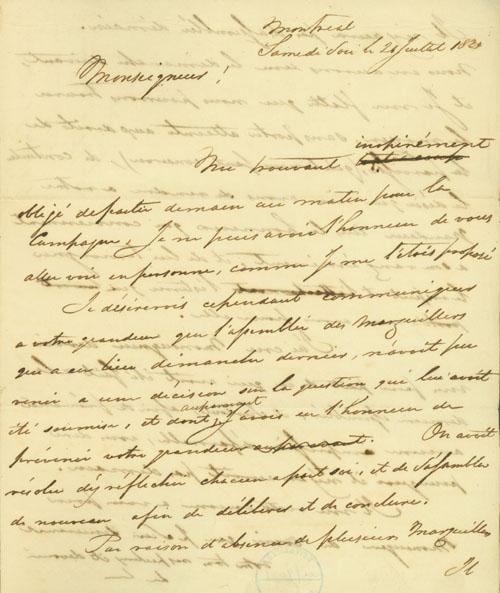 Montreal
Samedi Soir le 20 Juillet 182
Monseigneur!
inopinément
Me trouvant tout à coup
obligé de partir demain au matin pour la
Campagne, Je ne puis avoir l'honneur de vous
aller voir en personne, comme Je me l'étois proposé
Je désirerois cependant communiquer
a votre grandeur que l'assemblée des Marguilliers
qui a eu lieu dimanche dernier, n'avoit pu
venir a une décision sur la question qui lui avoit
auparavant
été soumise, et dont J'avois eu l'honneur de
prévenir votre grandeur auparavant. On avoit
résolu d'y réflechir chacun apart soi, et de s'assembler
de nouveau afin de délibérer et de conclure.
Par raison d'absence de plusieurs Marguilliers
Il